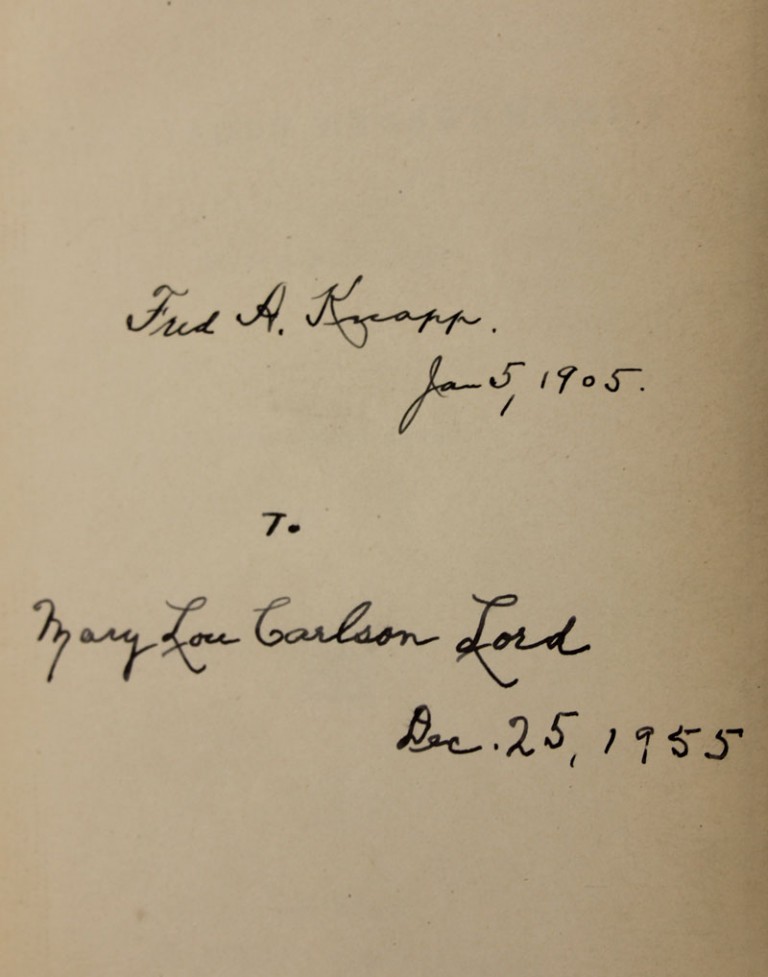 Fred A. Knapp.
Jan 5, 1905.
To
Mary Lou Carlson Lord
Dec. 25, 1955